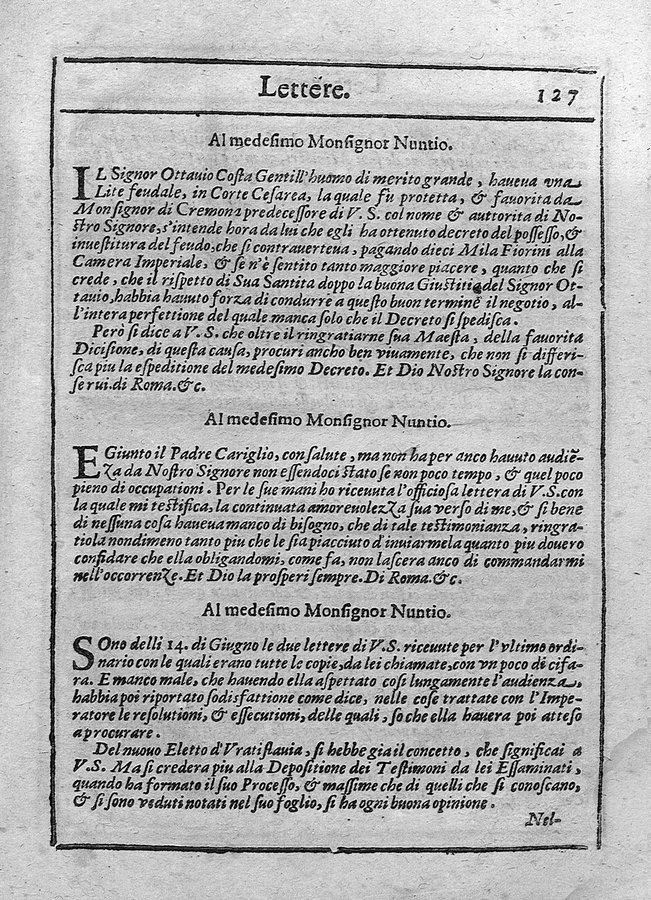 Lettere.
127
Al medesimo Monsignor Nuntio.
IL Signor Ottauio Costa Gentill'huomo di merito grande, haueua vna
Lite feudale, in Corte Cesarea, la quale fù protetta, & fauorita da
Monsignor di Cremona predecessore di V. S. col nome & auttorita di No-
stro Signore, s'intende hora da lui che egli ha ottenuto decreto del possesso, &
inuestitura del feudo, che si contrauerteua, pagando dieci Mila Fiorini alla
Camera Imperiale, & se n'è sentito tanto maggiore piacere, quanto che si
crede, che il rispetto di Sua Santita doppo la buona Giustitia del Signor Ot-
tauio, habbia hauuto forza di condurre a questo buon termine il negotio, al-
l'intera perfettione del quale manca solo che il Decreto si spedisca.
Però si dice a V. S. che oltre il ringratiarne sua Maesta, della fauorita
Dicisione, di questa causa, procuri ancho ben viuamente, che non si differi-
sca piu la espeditione del medesimo Decreto. Et Dio Nostro Signore la con-
serui. di Roma. &c.
Al medesimo Monsignor Nuntio.
E Giunto il Padre Cariglio, con salute, ma non ha per anco hauuto audiē-
za da Nostro Signore non essendoci stato se non poco tempo, & quel poco
pieno di occupationi. Per le sue mani ho riceuuta l'officiosa lettera di V. S. con
la quale mi testifica, la continuata amoreuolezza sua verso di me, & si bene
di nessuna cosa haueua manco di bisogno, che di tale testimonianza, ringra-
tiola nondimeno tanto piu che le sia piacciuto d'inuiarmela quanto piu douero
confidare che ella obligandomi, come fa, non lascera anco di commandarmi
nell'occorrenze. Et Dio la prosperi sempre. Di Roma. &c.
Al medesimo Monsignor Nuntio.
SOno delli 14. di Giugno le due lettere di V. S. riceuute per l'vltimo ordi-
nario con le quali erano tutte le copie, da lei chiamate, con vn poco di cifa-
ra. E manco male, che hauendo ella aspettato cosi lungamente l'audienza,
habbia poi riportato sodisfattione come dice, nelle cose trattate con l'Impe-
ratore le resolutioni, & essecutioni, delle quali, so che ella hauera poi atteso
a procurare.
Del nuouo Eletto d'Vratislauia, si hebbe gia il concetto, che significai a
V. S. Ma si credera piu alla Depositione dei Testimoni da lei Essaminati,
quando ha formato il suo Processo, & massime che di quelli che si conoscano,
& si sono veduti notati nel suo foglio, si ha ogni buona opinione.
Nel-